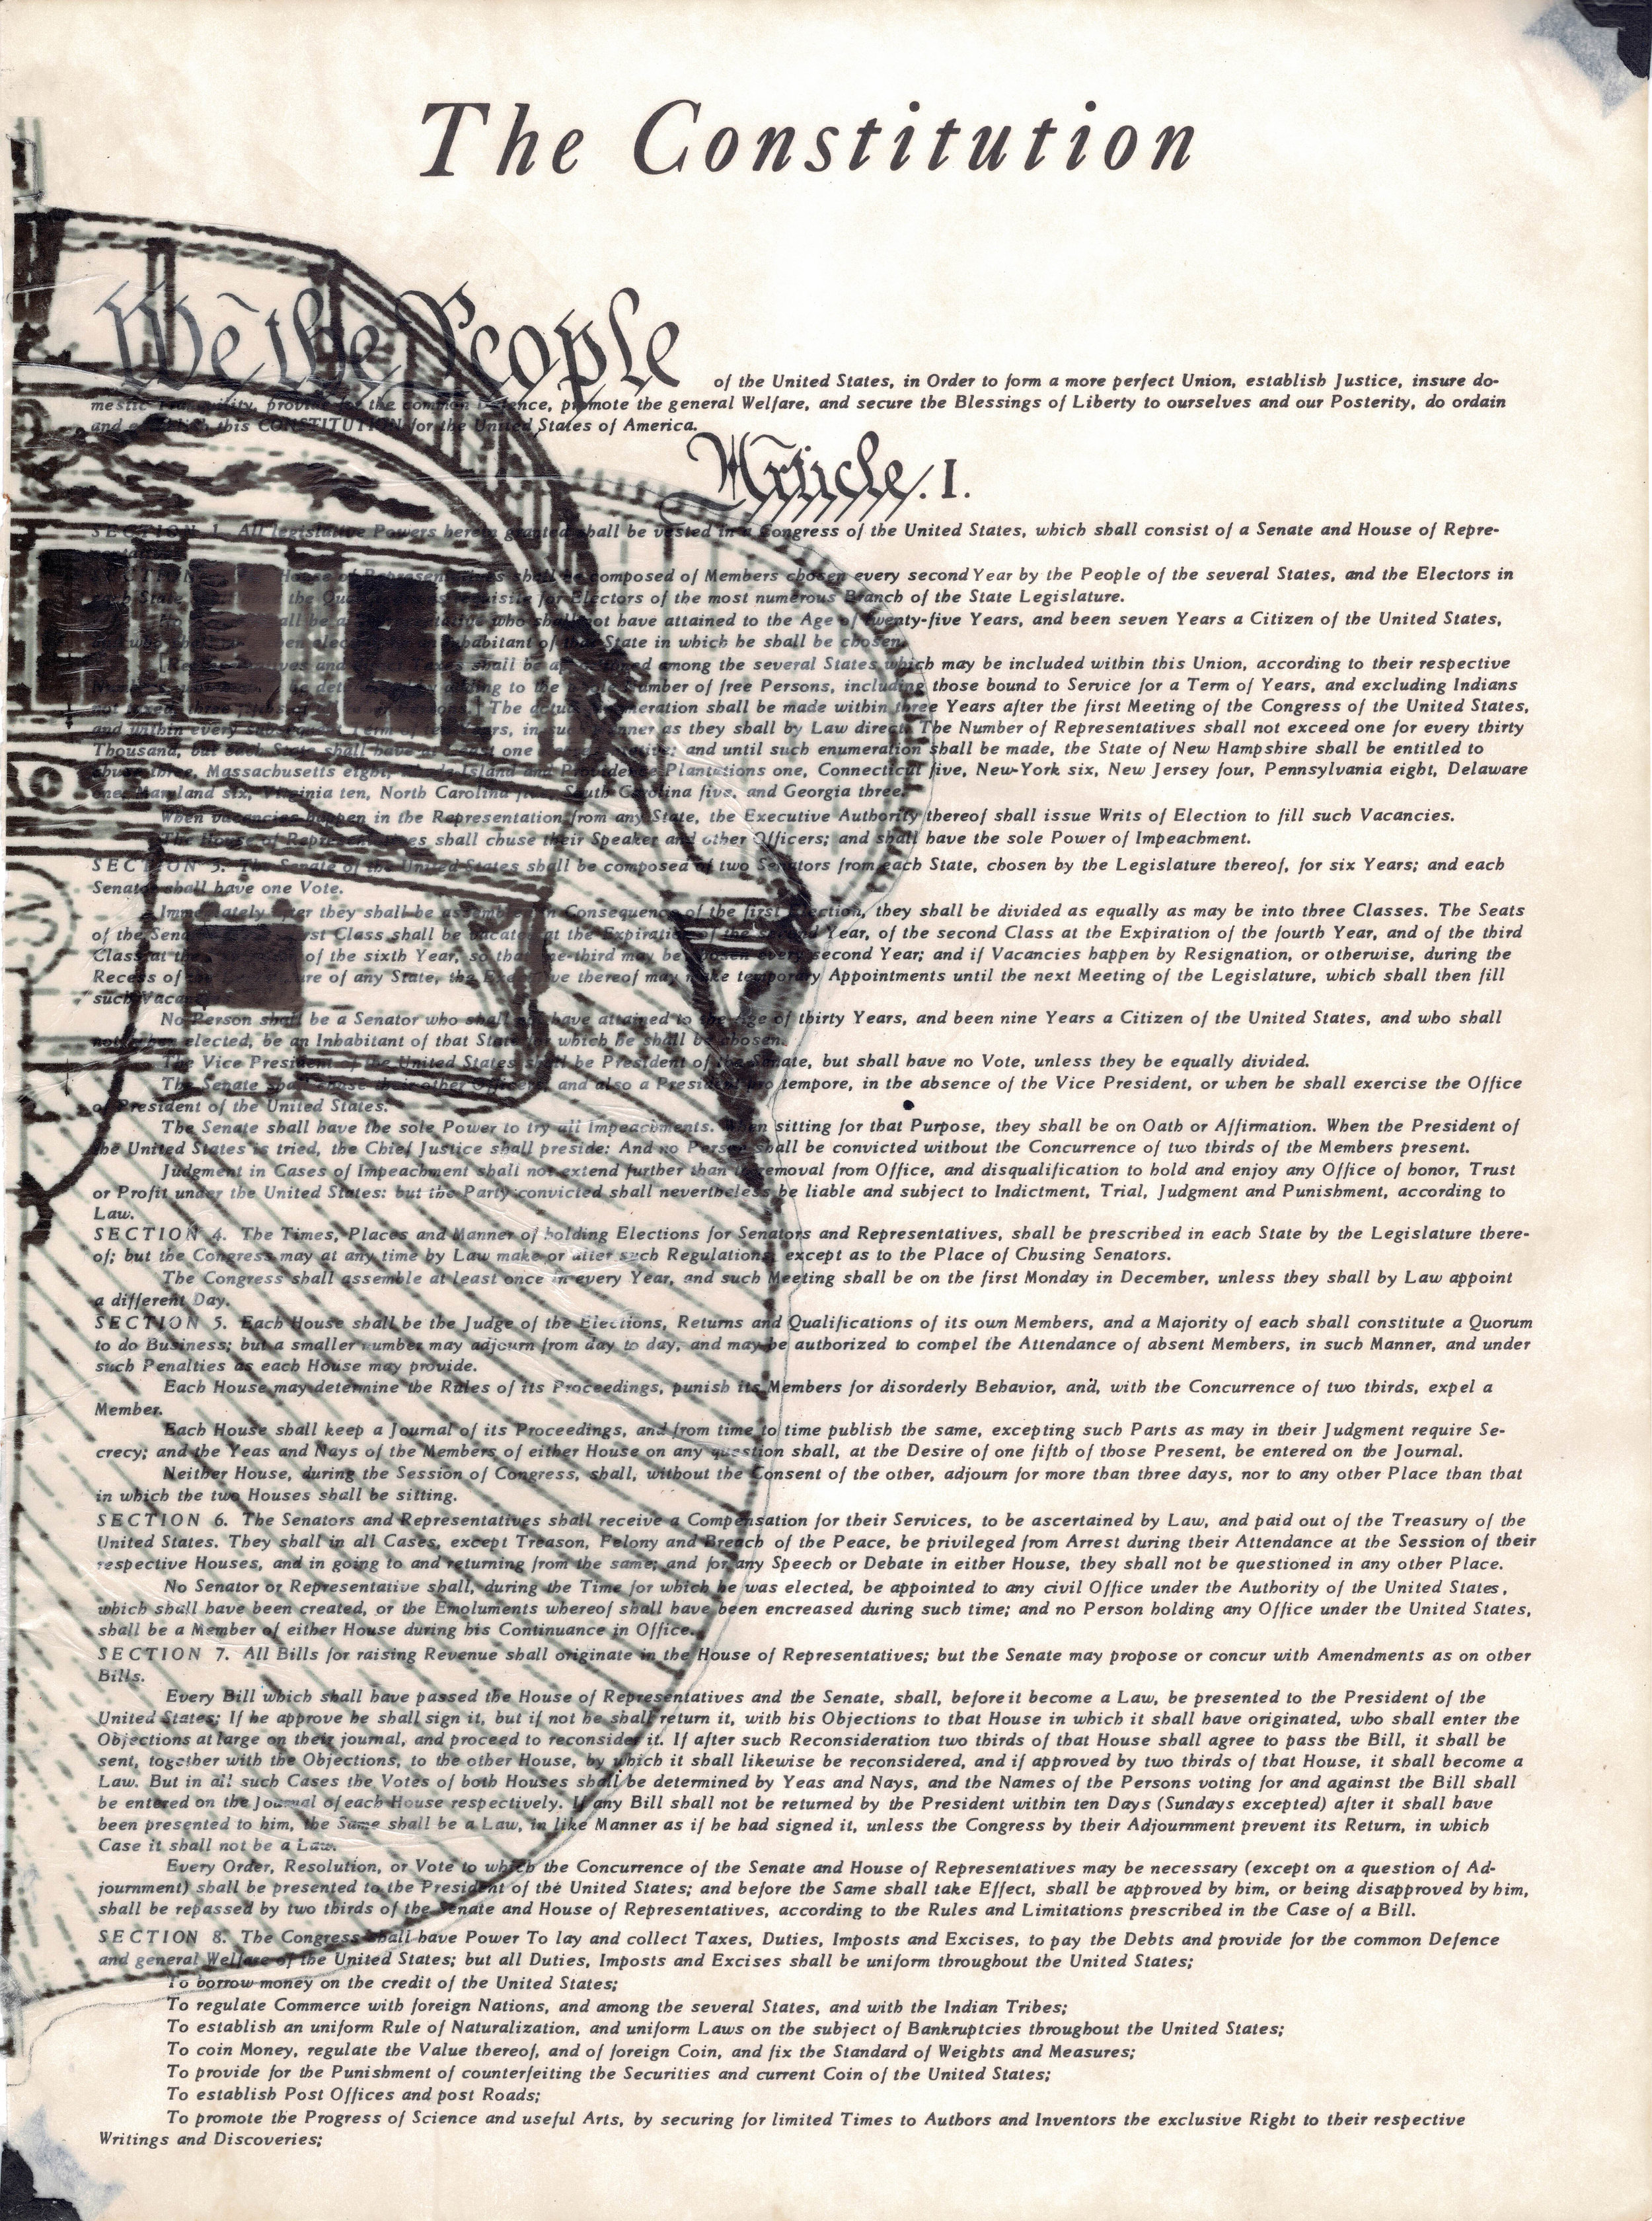 The Constitution
We the People
of the United States, in Order to form a more perfect Union, establish Justice, insure do-
mestic Tranquility, provide for the common Defence, promote the general Welfare, and secure the Blessings of Liberty to ourselves and our Posterity, do ordain
and establish this CONSTITUTION for the United States of America.
Article. I.
SECTION 1. All legislative Powers herein granted shall be vested in a Congress of the United States, which shall consist of a Senate and House of Repre-
House of Representatives shall be composed of Members chosen every second Year by the People of the several States, and the Electors in
the requisite for Electors of the most numerous Branch of the State Legislature.
who shall not have attained to the Age of twenty-five Years, and been seven Years a Citizen of the United States,
Inhabitant of that State in which he shall be chosen.
Taxes shall be among the several States which may be included within this Union, according to their respective
to the whole Number of free Persons, including those bound to Service for a Term of Years, and excluding Indians
The actual Enumeration shall be made within three Years after the first Meeting of the Congress of the United States,
and within every Term of ten Years, in such Manner as they shall by Law direct. The Number of Representatives shall not exceed one for every thirty
Thousand, but each State shall have at Least one and until such enumeration shall be made, the State of New Hampshire shall be entitled to
chuse three, Massachusetts eight, Rhode-Island and Providence Plantations one, Connecticut five, New-York six, New Jersey four, Pennsylvania eight, Delaware
one, Maryland six, Virginia ten, North Carolina five, South Carolina five, and Georgia three.
When vacancies happen in the Representation from any State, the Executive Authority thereof shall issue Writs of Election to fill such Vacancies.
The House of Representatives shall chuse their Speaker and other Officers; and shall have the sole Power of Impeachment.
SECTION 3. The Senate of the United States shall be composed of two Senators from each State, chosen by the Legislature thereof, for six Years; and each
Senator shall have one Vote.
Immediately after they shall be assembled in Consequence of the first Election, they shall be divided as equally as may be into three Classes. The Seats
of the first Class shall be vacated at the Expiration of the second Year, of the second Class at the Expiration of the fourth Year, and of the third
Class at the of the sixth Year, so that one-third may be chosen every second Year; and if Vacancies happen by Resignation, or otherwise, during the
Recess of of any State, the Executive thereof may make temporary Appointments until the next Meeting of the Legislature, which shall then fill
such
No Person shall be a Senator who shall not have attained to the Age of thirty Years, and been nine Years a Citizen of the United States, and who shall
not, when elected, be an Inhabitant of that State for which he shall be chosen.
The Vice President of the United States shall be President of the Senate, but shall have no Vote, unless they be equally divided.
The Senate shall chuse their other Officers, and also a President pro tempore, in the absence of the Vice President, or when he shall exercise the Office
of President of the United States.
The Senate shall have the sole Power to try all Impeachments. When sitting for that Purpose, they shall be on Oath or Affirmation. When the President of
the United States is tried, the Chief Justice shall preside: And no Person shall be convicted without the Concurrence of two thirds of the Members present.
Judgment in Cases of Impeachment shall not extend further than to removal from Office, and disqualification to hold and enjoy any Office of honor, Trust
or Profit under the United States: but the Party convicted shall nevertheless be liable and subject to Indictment, Trial, Judgment and Punishment, according to
Law.
SECTION 4. The Times, Places and Manner of holding Elections for Senators and Representatives, shall be prescribed in each State by the Legislature there-
of; but the Congress may at any time by Law make or alter such Regulations, except as to the Place of Chusing Senators.
The Congress shall assemble at least once in every Year, and such Meeting shall be on the first Monday in December, unless they shall by Law appoint
a different Day.
SECTION 5. Each House shall be the Judge of the Elections, Returns and Qualifications of its own Members, and a Majority of each shall constitute a Quorum
to do Business; but a smaller number may adjourn from day to day, and may be authorized to compel the Attendance of absent Members, in such Manner, and under
such Penalties as each House may provide.
Each House may determine the Rules of its Proceedings, punish its Members for disorderly Behavior, and, with the Concurrence of two thirds, expel a
Member.
Each House shall keep a Journal of its Proceedings, and from time to time publish the same, excepting such Parts as may in their Judgment require Se-
crecy; and the Yeas and Nays of the Members of either House on any question shall, at the Desire of one fifth of those Present, be entered on the Journal.
Neither House, during the Session of Congress, shall, without the Consent of the other, adjourn for more than three days, nor to any other Place than that
in which the two Houses shall be sitting.
SECTION 6. The Senators and Representatives shall receive a Compensation for their Services, to be ascertained by Law, and paid out of the Treasury of the
United States. They shall in all Cases, except Treason, Felony and Breach of the Peace, be privileged from Arrest during their Attendance at the Session of their
respective Houses, and in going to and returning from the same; and for any Speech or Debate in either House, they shall not be questioned in any other Place.
No Senator or Representative shall, during the Time for which he was elected, be appointed to any civil Office under the Authority of the United States,
which shall have been created, or the Emoluments whereof shall have been encreased during such time; and no Person holding any Office under the United States,
shall be a Member of either House during his Continuance in Office.
SECTION 7. All Bills for raising Revenue shall originate in the House of Representatives; but the Senate may propose or concur with Amendments as on other
Bills.
Every Bill which shall have passed the House of Representatives and the Senate, shall, before it become a Law, be presented to the President of the
United States; If he approve he shall sign it, but if not he shall return it, with his Objections to that House in which it shall have originated, who shall enter the
Objections at large on their journal, and proceed to reconsider it. If after such Reconsideration two thirds of that House shall agree to pass the Bill, it shall be
sent, together with the Objections, to the other House, by which it shall likewise be reconsidered, and if approved by two thirds of that House, it shall become a
Law. But in all such Cases the Votes of both Houses shall be determined by Yeas and Nays, and the Names of the Persons voting for and against the Bill shall
be entered on the Journal of each House respectively. If any Bill shall not be returned by the President within ten Days (Sundays excepted) after it shall have
been presented to him, the Same shall be a Law, in like Manner as if he had signed it, unless the Congress by their Adjournment prevent its Return, in which
Case it shall not be a Law.
Every Order, Resolution, or Vote to which the Concurrence of the Senate and House of Representatives may be necessary (except on a question of Ad-
journment) shall be presented to the President of the United States; and before the Same shall take Effect, shall be approved by him, or being disapproved by him,
shall be repassed by two thirds of the Senate and House of Representatives, according to the Rules and Limitations prescribed in the Case of a Bill.
SECTION 8. The Congress shall have Power To lay and collect Taxes, Duties, Imposts and Excises, to pay the Debts and provide for the common Defence
and general Welfare of the United States; but all Duties, Imposts and Excises shall be uniform throughout the United States;
To borrow money on the credit of the United States;
To regulate Commerce with foreign Nations, and among the several States, and with the Indian Tribes;
To establish an uniform Rule of Naturalization, and uniform Laws on the subject of Bankruptcies throughout the United States;
To coin Money, regulate the Value thereof, and of foreign Coin, and fix the Standard of Weights and Measures;
To provide for the Punishment of counterfeiting the Securities and current Coin of the United States;
To establish Post Offices and post Roads;
To promote the Progress of Science and useful Arts, by securing for limited Times to Authors and Inventors the exclusive Right to their respective
Writings and Discoveries;